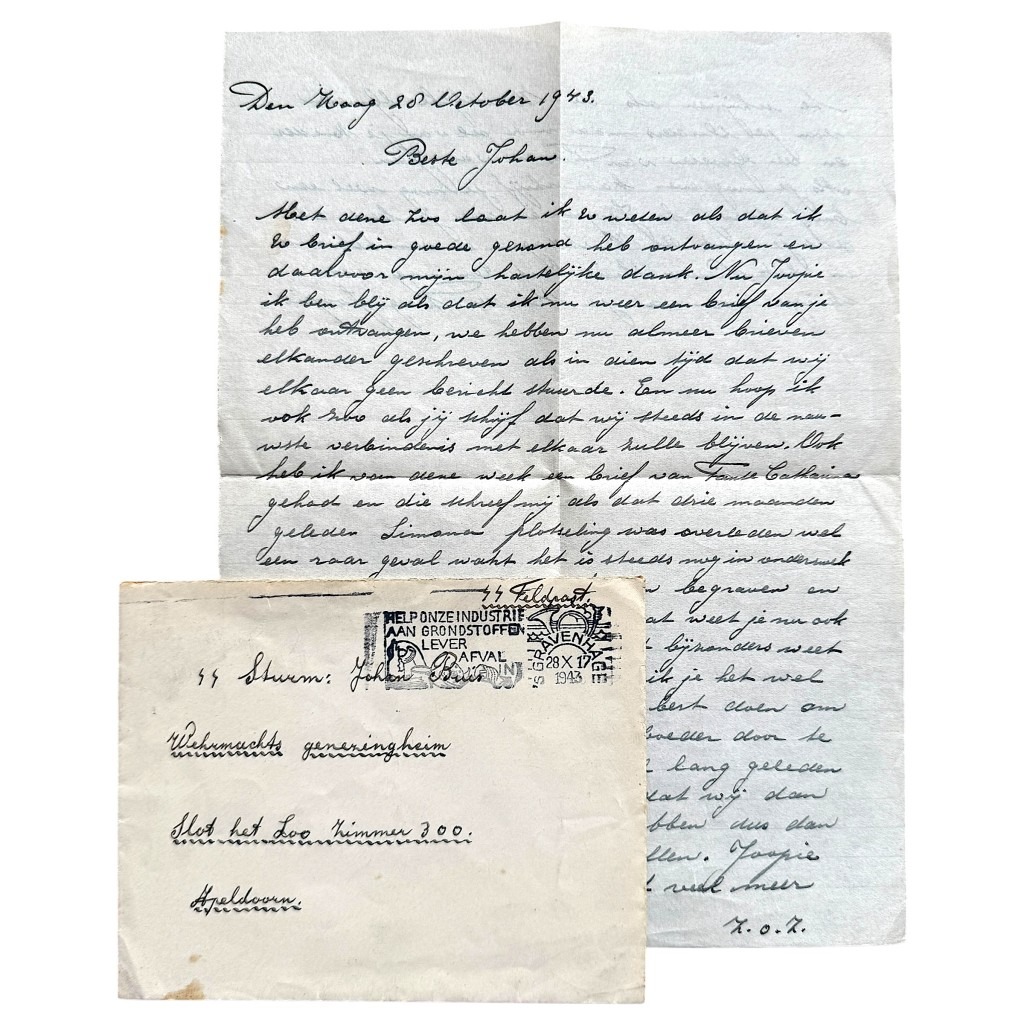 Den Haag 28 October 1943.
Beste Johan.
Met deze zos laat ik U weten als dat ik
U brief in goede gezond heb ontvangen en
daalvoor mijn hartelijke dank. Nu Joopie
ik ben blij als dat ik nu weer een brief van je
heb ontvangen, we hebben nu almeer brieven
elkander geschreven als in dien tijd dat wij
elkaar geen bericht stuurde. En nu hoop ik
ook zoo als jij schijf dat wij steeds in de nau-
wste verbindenis met elkaar zulle blijven. Ook
heb ik van deze week een brief van Tante Catharina
gehad en die schreef mij als dat drie maanden
geleden Simona plotseling was overleden wel
een raar geval want het is steeds nog in onderzoek
begraven en
at weet je nu ook
bijzonders weet
ik je het wel
best doen om
oeder door te
lang geleden
dat wij dan
bben dus dan
llen. Joopie
veel meer
Z.O.Z.
SS Feldpost.
HELP ONZE INDUSTRIE
AAN GRONDSTOFFEN
LEVER
AFVAL
IN
'S GRAVENHAGE
28 X 17
1943
SS Sturm: Johan Bus
Wehrmachts genezingheim
Slot het Loo Zimmer 300.
Apeldoorn.